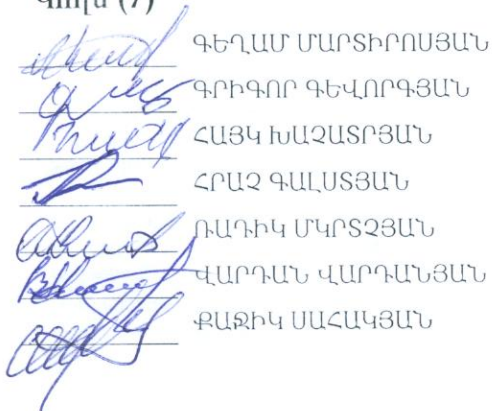 (7)
ԳԵՂԱՄ ՄԱՐՏԻՐՈՍՅԱՆ
ԳՐԻԳՈՐ ԳԵՎՈՐԳՅԱՆ
ՀԱՅԿ ԽԱՉԱՏՐՅԱՆ
ՀՐԱՉ ԳԱԼՍՏՅԱՆ
ՌԱԴԻԿ ՄԿՐՏՉՅԱՆ
ՎԱՐԴԱՆ ՎԱՐԴԱՆՅԱՆ
ՔԱՋԻԿ ՍԱՀԱԿՅԱՆ